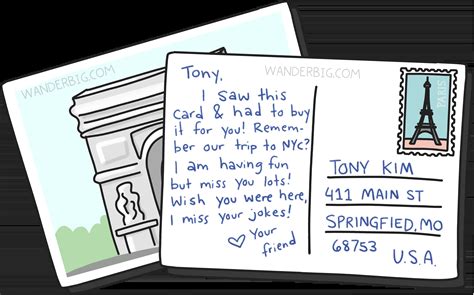 WANDERBIG.COM
Tony,
WANDERBIG.COM
I saw this
card & had to buy
it for you! Remem-
ber our trip to NYC?
I am having fun
but miss you lots!
Wish you were here,
I miss your jokes!
♡ Your
friend
PARIS
TONY KIM
411 MAIN ST
SPRINGFIED, MO
68753
U.S.A.